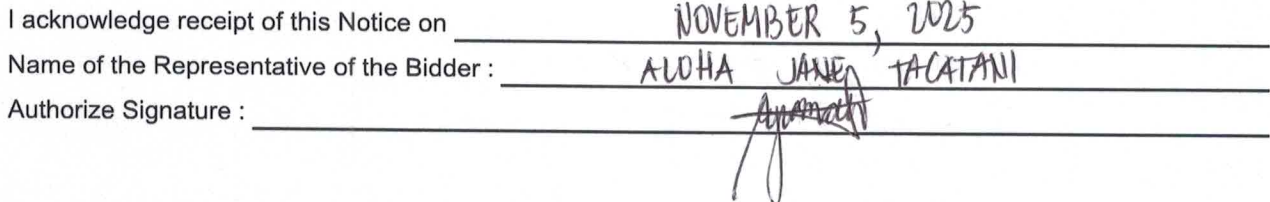 I acknowledge receipt of this Notice on NOVEMBER 5, 2025
Name of the Representative of the Bidder : ALOHA JANE TACATANI
Authorize Signature :